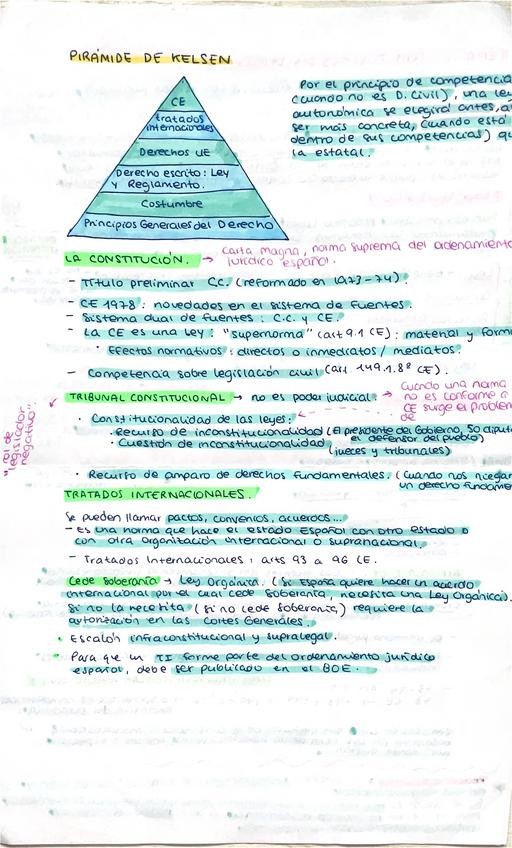 PIRÁMIDE DE KELSEN
CE
tratados
internacionales
Derechos UE
Derecho escrito: Ley
y Reglamento.
Costumbre
Principios Generales del Derecho
Por el principio de competencia
(cuando no es D. Civil), una ley
autonómica se elegirá antes, a
ser más concreta, (cuando está
dentro de sus competencias) q
la estatal.
LA CONSTITUCIÓN. → carta magna, norma suprema del ordenamiento
jurídico español.
- Título preliminar C.C. (reformado en 1973-74).
- CE 1978: novedades en el sistema de fuentes.
- Sistema dual de fuentes: C.C. y CE.
- La CE es una Ley: "supernorma" (art 9.1 CE): material y form
· Efectos normativos: directos o inmediatos / mediatos.
- Competencia sobre legislación civil (art 149.1.8ª CE).
TRIBUNAL CONSTITUCIONAL → no es poder judicial.
→ Cuando una norma
no es conforme a
CE surge el problem
de
"rol de
legislador
negativo"
· Constitucionalidad de las leyes.
· Recurso de inconstitucionalidad (El presidente del Gobierno, 50 diput
el defensor del pueblo)
· Cuestión de inconstitucionalidad
(jueces y tribunales)
· Recurso de amparo de derechos fundamentales. (Cuando nos niegan
un derecho fundame
TRATADOS INTERNACIONALES.
Se pueden llamar pactos, convenios, acuerdos...
- Es una norma que hace el estado Español con otro estado o
con otra organización internacional o supranacional.
- Tratados Internacionales: arts 93 a 96 CE.
Cede soberanía → Ley Orgánica. (Si España quiere hacer un acuerdo
internacional por el cual cede soberanía, necesita una Ley Orgánica).
Si no la necesita (si no cede soberanía) requiere la
autorización en las Cortes Generales.
· Escalón infraconstitucional y supralegal.
· Para que un TI forme parte del ordenamiento jurídico
español, debe ser publicado en el BOE.